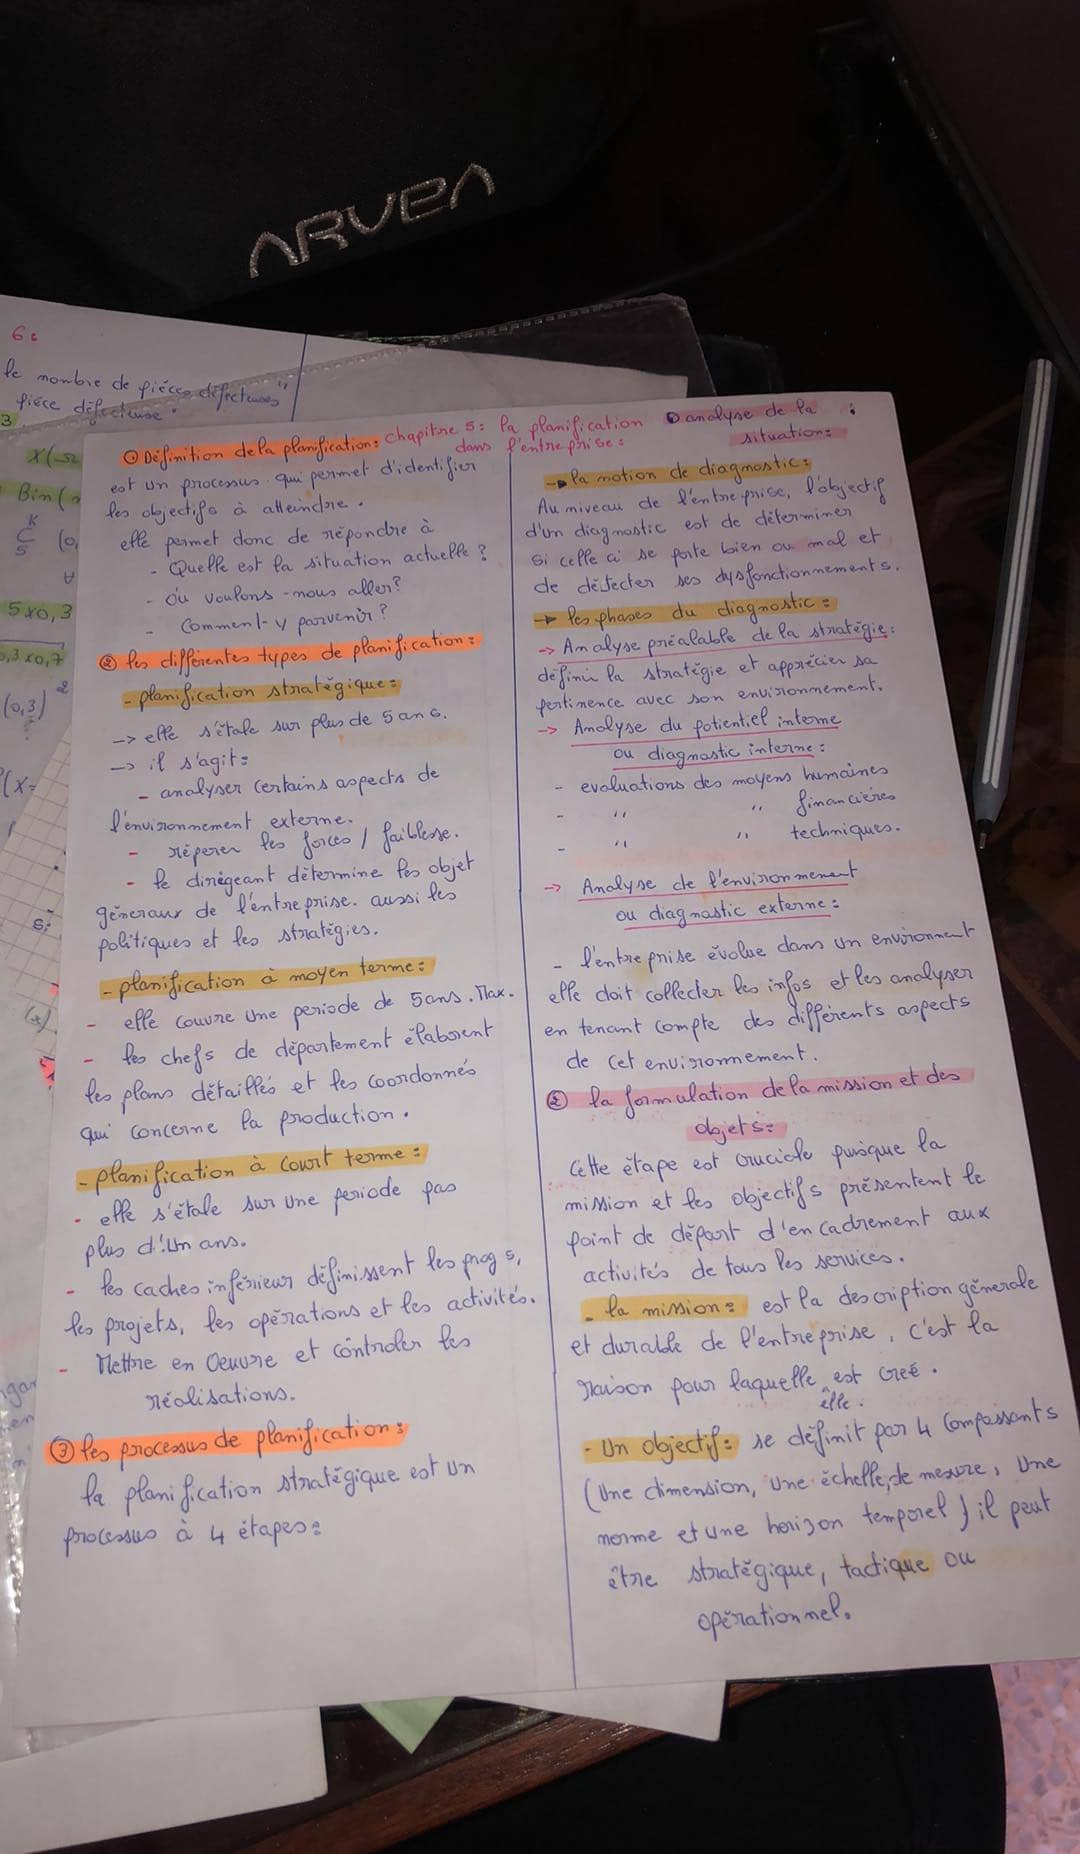 ARVEA
6:
le nombre de piéces défectueuses"
piéce défectueuse"
3
Bin(n
K
C
5
(0,
5x0,3
0,3x0,7
(0,3)²
P(X=
chapitre 5: la planification
dans l'entreprise:
① Définition de la planification:
est un processus qui permet d'identifier
les objectifs à atteindre.
elle permet donc de répondre à
- Quelle est la situation actuelle ?
- où voulons-nous aller?
- Comment-y parvenir ?
② les différentes types de planification:
- planification stratégique:
-> elle s'étale sur plus de 5 ans.
-> il s'agit:
- analyser certains aspects de
l'environnement externe.
- réperer les forces / faiblesse.
- le dirigeant détermine les objet
géneraux de l'entreprise. aussi les
politiques et les stratégies.
- planification à moyen terme:
- elle couvre une periode de 5ans. Max.
- les chefs de département élaborent
les plans détaillés et les coordonnés
qui concerne la production.
- planification à court terme:
- elle s'étale sur une periode pas
plus d'un ans.
- les caches inférieur définissent les prog s,
les projets, les opérations et les activités.
- Mettre en Oeuvre et contrôler les
réalisations.
③ les processus de planification:
la planification stratégique est un
processus à 4 étapes:
① analyse de la :
situation:
-> la notion de diagnostic:
Au niveau de l'entreprise, l'objectif
d'un diagnostic est de déterminer
si celle ci se porte bien ou mal et
de détecter ses dysfonctionnements.
-> les phases du diagnostic:
-> Analyse préalable de la stratégie:
définir la stratégie et apprécier sa
pertinence avec son environnement.
-> Analyse du potientiel interne
ou diagnostic interne:
- evaluations des moyens humaines
- " " financières
- " " techniques.
-> Analyse de l'environnement
ou diagnostic externe:
- l'entreprise évolue dans un environnent
elle doit collecter les infos et les analyser
en tenant compte des différents aspects
de cet environnement.
② la formulation de la mission et des
objets:
Cette étape est cruciale puisque la
mission et les objectifs présentent le
point de départ d'encadrement aux
activités de tous les services.
- la mission: est la description génerale
et durable de l'entreprise, c'est la
raison pour laquelle est creé.
elle.
- Un objectif: se définit par 4 Compassants
(Une dimension, une échelle de mesure, Une
norme et une horizon temporel) il peut
être stratégique, tactique ou
opérationnel.